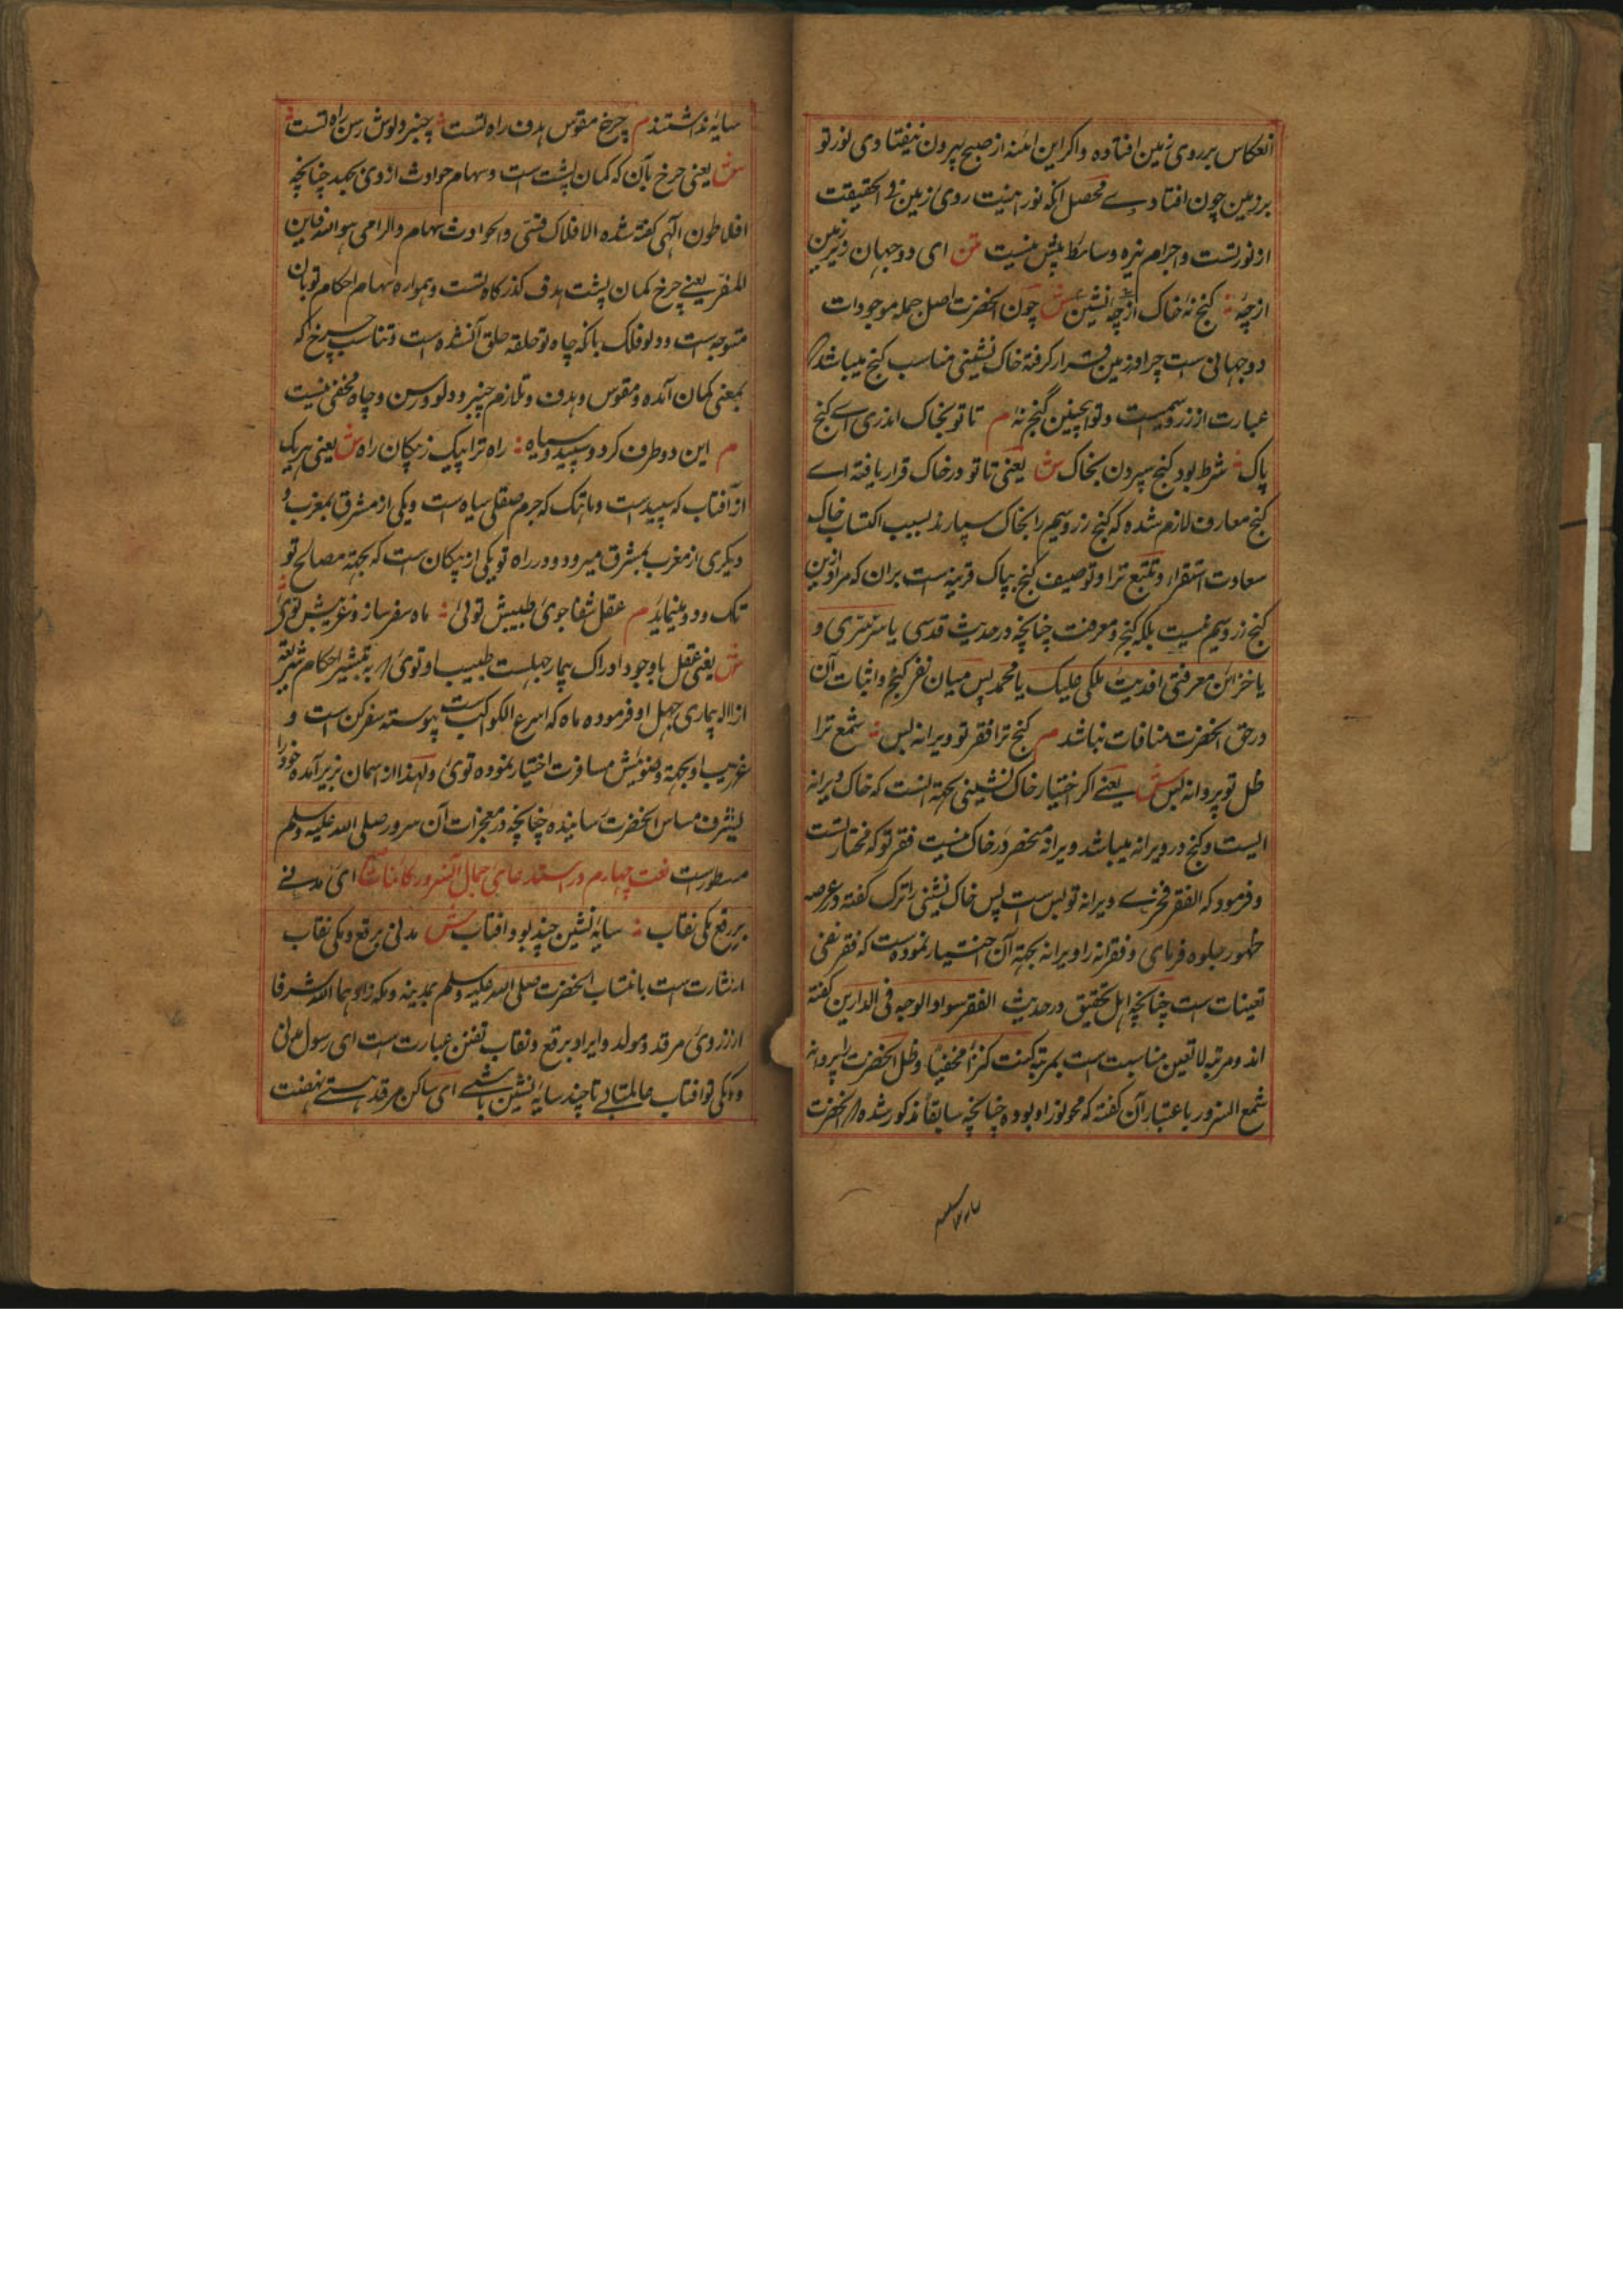 انعکاس بر روی زمین افتاده و اکر این ائنه از صبح بیرون نیفتادی نور تو
بر زمین چون افتادے محصل انکه نورانیت روی زمین فی الحقیقت
از نور تست و اجرام نیره وسائط بیش نیست متن ای دو جهان زیر زمین
از چۀ کنج نۀ خاک نشین از چۀ ش چون انحضرت اصل جمله موجودات
دو جهانی ست چرا در زمین قرار کرفته خاک نشینی مناسب کنج میباشد
عبارت از زر و سیم ست و تو اینچنین کنج نۀ م تا تو بخاک اندری اے کنج
پاک شرط بود کنج سپردن بخاک ش یعنی تا تو در خاک قرار یافته اے
کنج معارف لازم شده که کنج زر و سیم را بخاک سپارند بسبب اکتساب خاک
سعادت استقرار و تتبع ترا و توصیف کنج بپاک قرینه است بران که مراد ازین
کنج زر و سیم نیست بلکه کنج و معرفت چنانچه در حدیث قدسی یا سر سری و
یا خزائن معرفتی افدیت ملکی علیک یا محمد پس میان نفر کنج و اثبات آن
در حق انحضرت منافات نباشد م کنج ترا فقر تو ویرانه بس شمع ترا
ظل تو پروانه بس ش یعنے اکر اختیار خاک نشینی بجهة انست که خاک ویرانه
ایست و کنج در ویرانه میباشد ویرانه منحصر در خاک نیست فقر تو که مختار تست
و فرمود که الفقر فخرے ویرانه تو بس ست پس خاک نشینی را ترک کفته در عرصه
ظهور جلوه فرمای و فقرانه را ویرانه بجهة آن اختیار نموده ست که فقر نفی
تعینات ست چنانچه اهل تحقیق در حدیث الفقر سواد الوجه فی الدارین کفته
اند و مرتبه لا تعین مناسبت است بمرتبه کنت کنزا مخفیا و ظل انحضرت را پروانه
شمع انسرور باعتبار آن کفته که محو نور او بوده چنانچه سابقا مذکور شده انحضرت
سایه نداشتند م چرخ مقوس هدف راه تست چنبر دلوش رسن راه تست
ش یعنی چرخ بآن که کمان پشت است و سهام حوادث از وی بجهد چنانچه
افلاطون الهی کفته شده الافلاک قسی والحوادث سهام والرامی هو الله فاین
المفر یعنے چرخ کمان پشت هدف کذرکاه تست و همواره سهام احکام تو بان
متوجه است و دلو فلک بانکه چاه تو حلقه حلق آنشده است و تناسب چرخ که
بمعنی کمان آمده و مقوس و هدف و تلازم چنبر و دلو و رسن و چاه مخفی نیست
م این دو طرف کرد و سپید و سیاه راه ترا پیک ز پیکان راه ش یعنی هر یک
از آفتاب که سپید است و ماهتک که جرم صقلی سیاه است و یکی از مشرق بمغرب و
دیکری از مغرب بمشرق میرود و در راه تو یکی از پیکان است که بجهة مصالح تو
تک و دو مینماید م عقل شفا جوی طبیبش توئی ماه سفر ساز و غریبش توئی
ش یعنی عقل با وجود ادراک بیمار جهلست طبیب او توی به تبشیر احکام شریعة
ازاله بیماری جهل او فرموده ماه که اسرع الکواکب است پیوسته سفر کن است و
غریب او بجهة مسافرت اختیار نموده توی و لهذا از اسمان بزیر آمده خود را
بشرف مساس انحضرت رسانیده چنانچه در معجزات آن سرور صلی الله علیه وسلم
مسطور است نعت چهارم در استدعای جمال آنسرور کائنات ای مدنے
برقع مکی نقاب سایه نشین چند بود افتاب ش مدنی برقع و مکی نقاب
اشارت است بانتساب انحضرت صلی الله علیه وسلم بمدینه و مکه زادهما الله شرفا
از روی مرقد و مولد و ایراد برقع و نقاب تفنن عبارت است ای رسول مدنی
و مکی تو افتاب عالمتابے تا چند سایه نشین باشے ای ساکن مرقد هستے نهضت